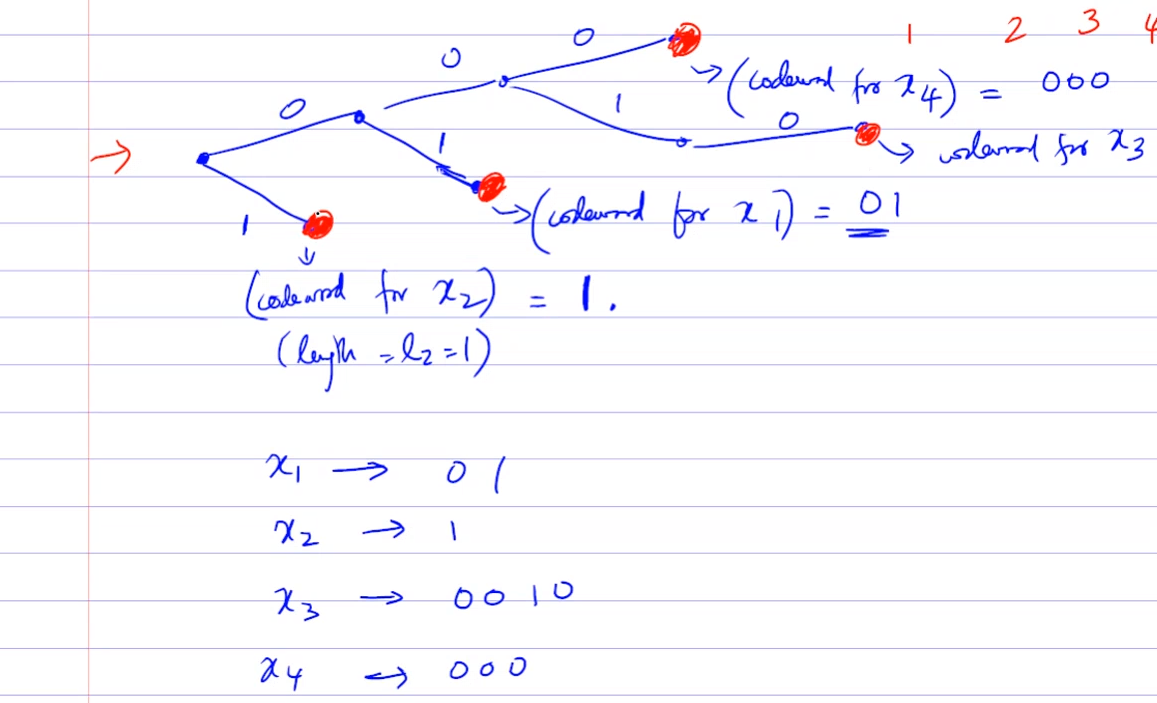 1 2 3 4
0
0 → (codeword for x4) = 000
0
1
0
→ codeword for x3
1
→ (codeword for x1) = 01
1
↓
(codeword for x2) = 1.
(length = l2 = 1)
x1 → 01
x2 → 1
x3 → 0010
x4 ↔ 000